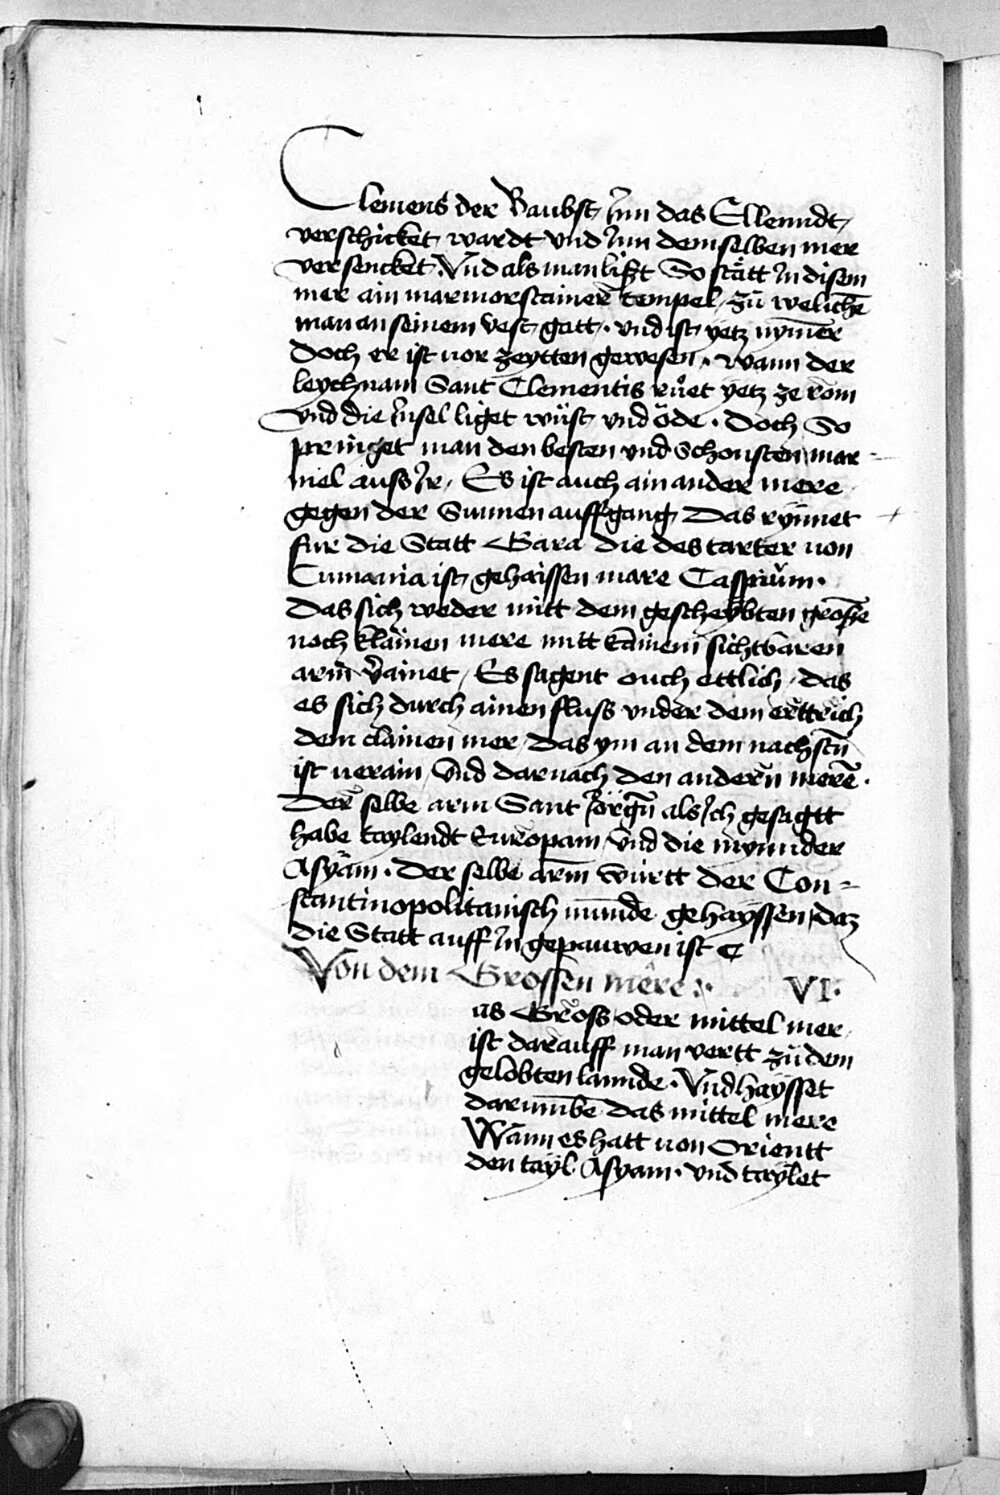 Clemens der Baubst Jnn das Ellenndt
verschicket wardt vnd Jnn demselben mer
versencket. Vnd als man lißt So stätt Jn disem
mer ain marmorstainer̄ tempel, zů welichē
man an seinem vest gatt. vnd ist yetz nym̄er
doch er ist vor zeytten gewesen. wann der
leychnam Sant Clementis růet yetz ze rom
vnd die Jnsel liget wüst vnd öde. Doch So
pringet man den besten vnd schonsten mar-
mel auss Jr, Es ist auch ain ander mere
gegen der Sunnen auffgang Das rynnet
fur die Statt Gara die des tarter von
Cumania ist gehaissen mare Caspiům.
Das sich weder mitt dem gescheybten grossē
noch klainen mere mitt kainem sichtbaren
arm v̄ainet, Es sagent ouch ettlich, das
es sich durch ainen fluss vnder dem erttrich
dem clainen mer, das ym an dem nachstn̄
ist verain, vnd darnach den andern̄ merē.
Der̄ selbe arm Sant Jörgn̄ als Jch gesagtt
habe taylendt Europam, vnd die mynnder
Asyam. Der selbe arm̄ wurtt der Con-
stantinopolitanisch mundē gehayssen, daz
die Statt auff Jn gepauwen ist
Von dem Grossen mere. VI.
as Gross oder mittel mer
ist darauff man vertt zů dem
gelobten lannde. Vnd haysset
darumbē das mittel mere
Wann es hatt von Orientt
den tayl Asyam. vnd taylet